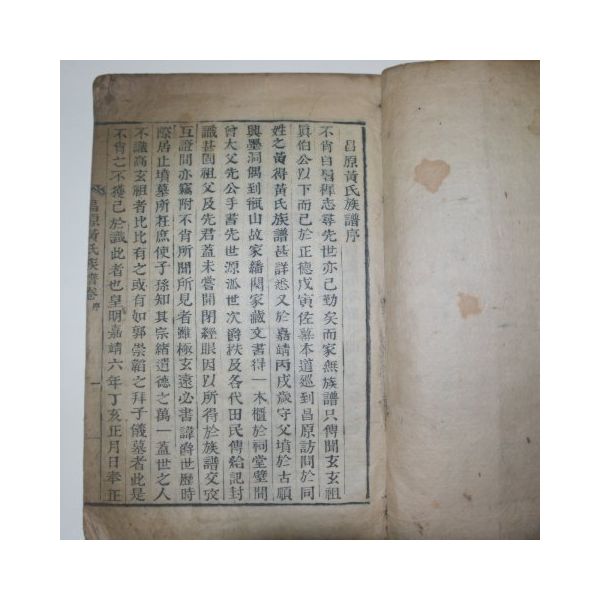 昌原黃氏族譜序
不肖自髫稚志尋先世亦已勤矣而家無族譜只傳聞玄玄祖
眞伯公以下而已於正德戊寅佐幕本道巡到昌原訪問於同
姓之黃得黃氏族譜甚詳悉又於嘉靖丙戌歲守父墳於古順
興墨洞偶到甁山故家繙閱家藏文書得一木櫃於祠堂壁間
曾大父先公手書先世源派世次爵秩及各代田民傳給記封
識甚固祖父及先君蓋未嘗開閉經眼因以所得於族譜交攷
互證間亦竊附不肖所聞所見者雖極玄遠必書諱爵世歷時
際居止墳墓所在庶使子孫知其宗緖遺德之萬一蓋世之人
不識高玄祖者比比有之或有如郭崇韜之拜子儀墓者此是
不肖之不獲已於識此者也皇明嘉靖六年丁亥正月日奉正
昌原黃氏族譜卷 序 一